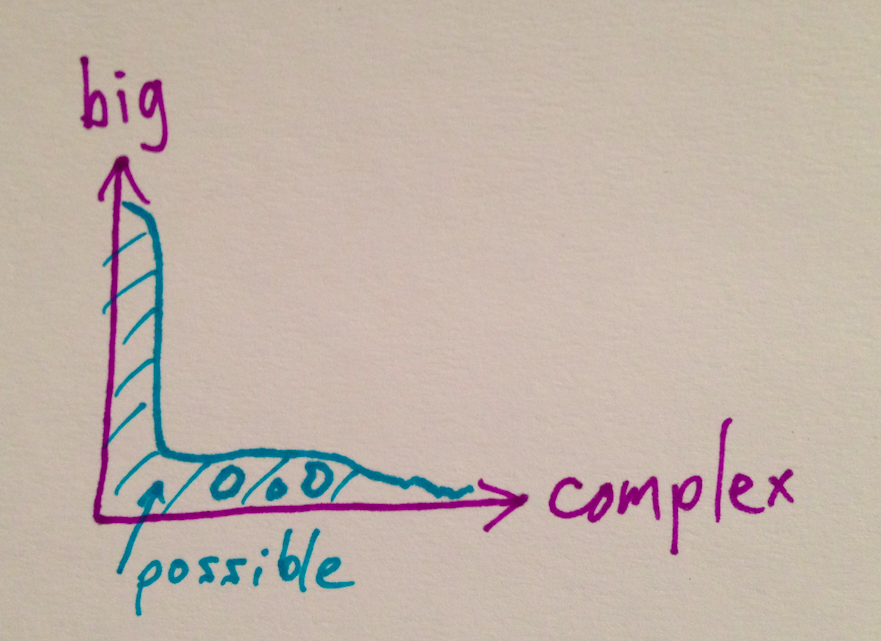 big
complex
possible